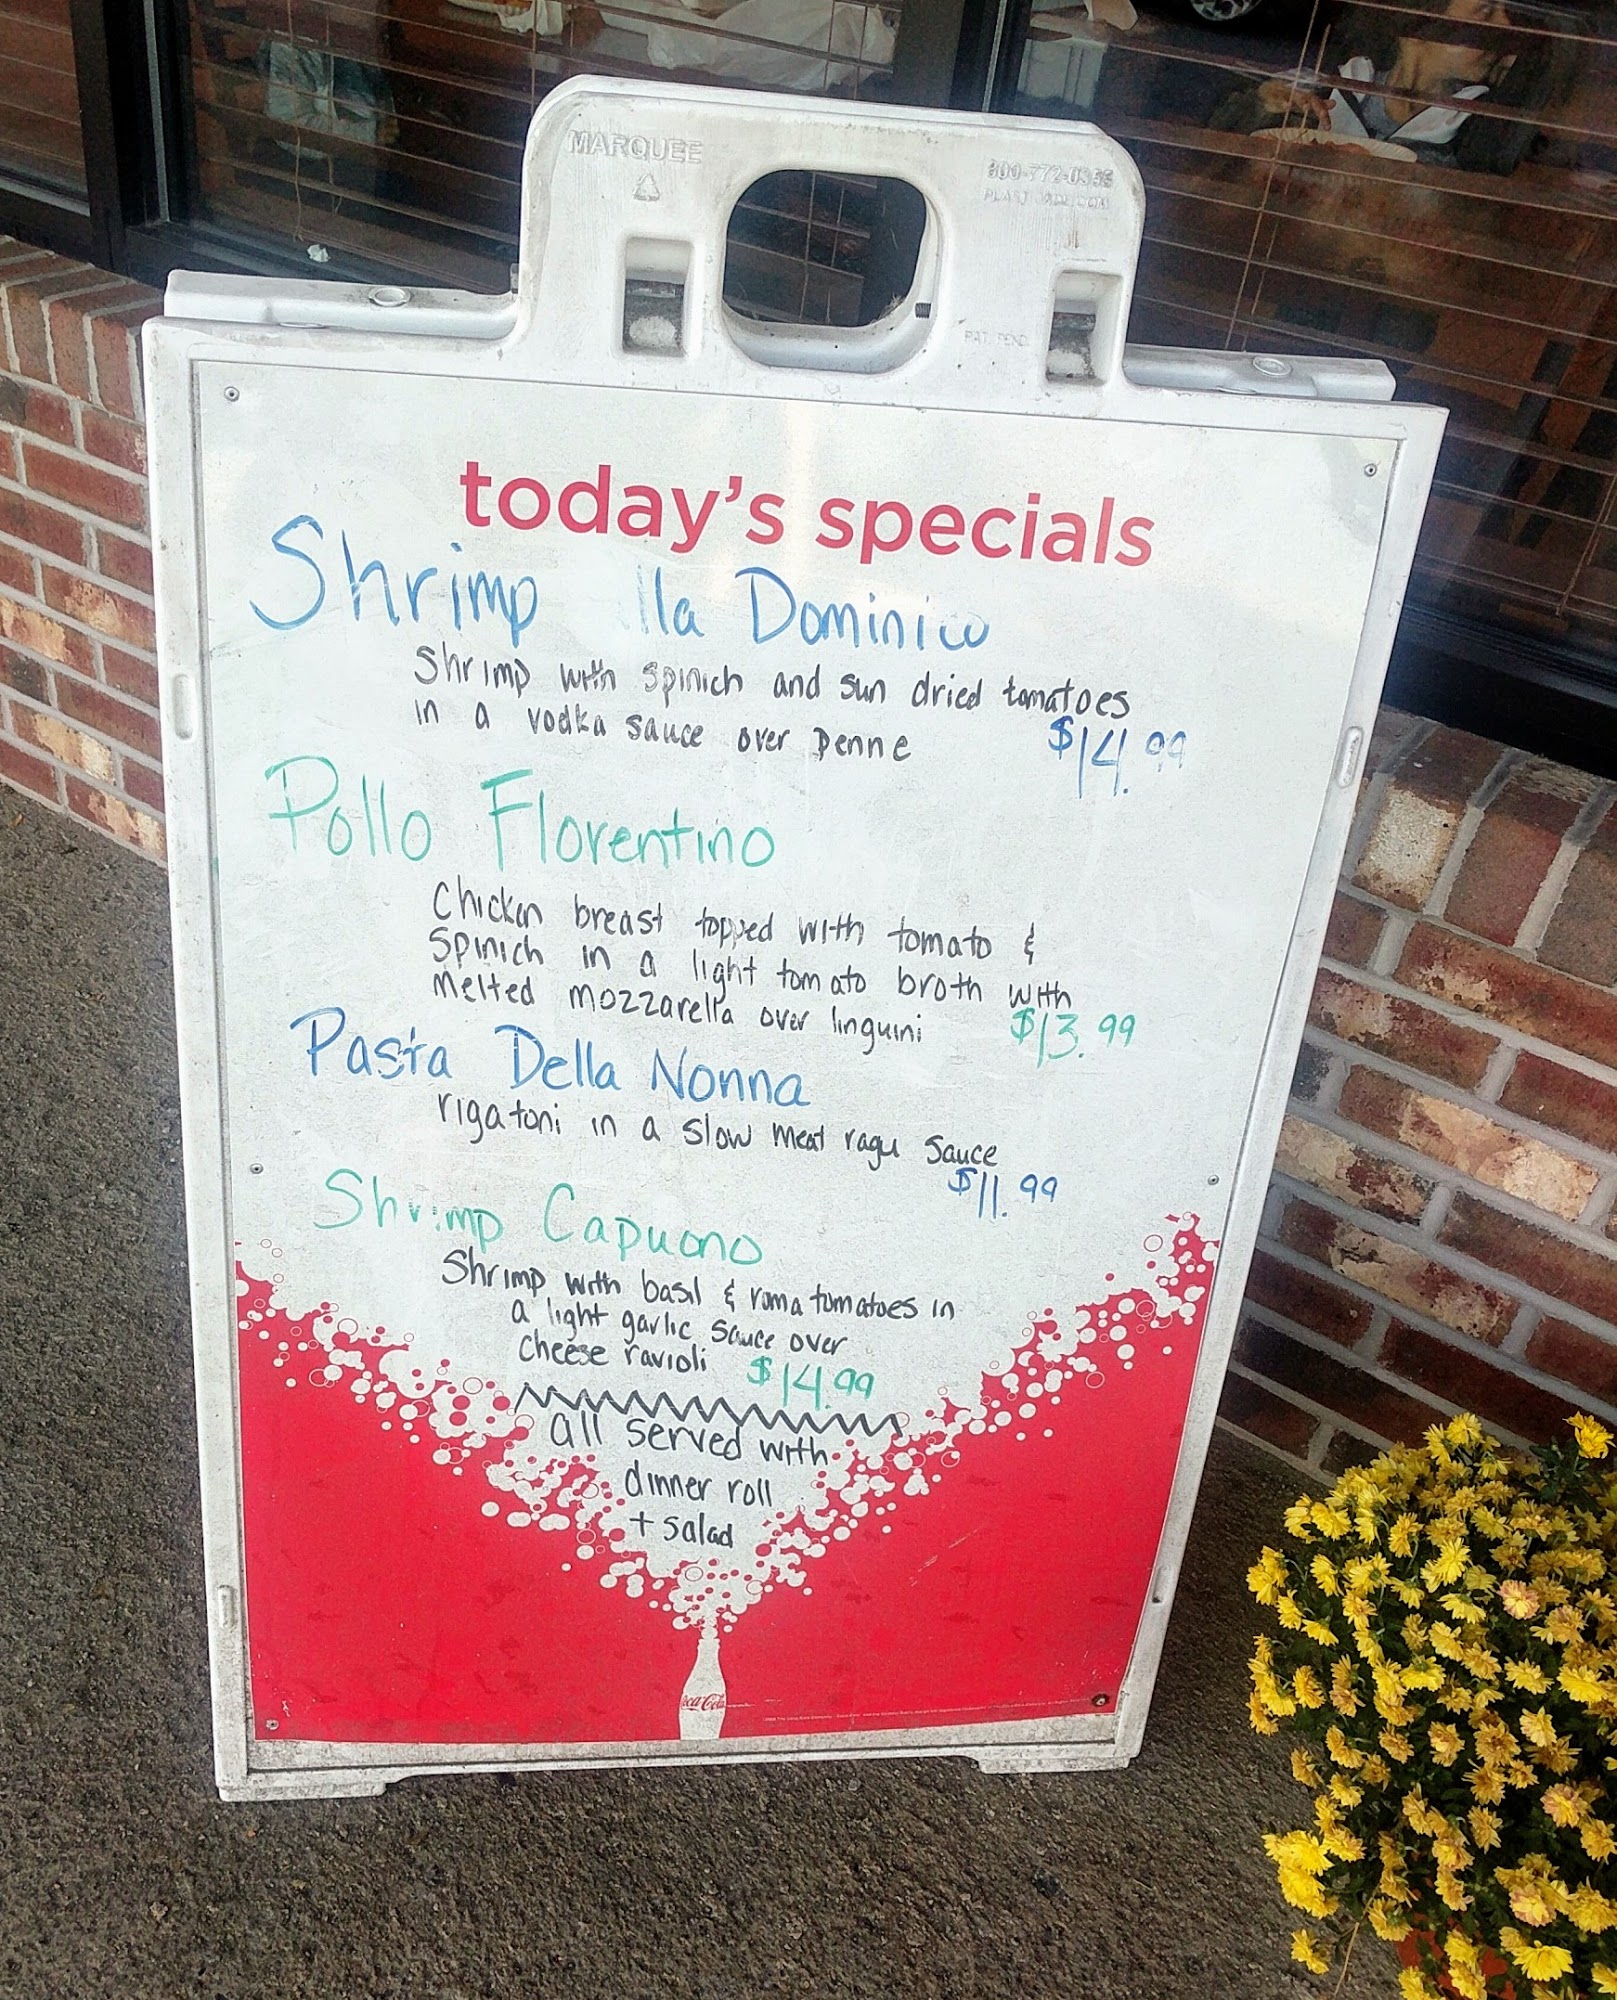 MARQUEE
PAT. PEND.
today's specials
Shrimp lla Dominico
Shrimp with spinich and sun dried tomatoes
in a vodka sauce over penne $14.99
Pollo Florentino
Chicken breast topped with tomato &
Spinich in a light tomato broth with
melted mozzarella over linguini $13.99
Pasta Della Nonna
rigatoni in a slow meat ragu sauce
$11.99
Shrimp Capuono
Shrimp with basil & roma tomatoes in
a light garlic sauce over
cheese ravioli $14.99
all served with
dinner roll
+ salad
Coca-Cola